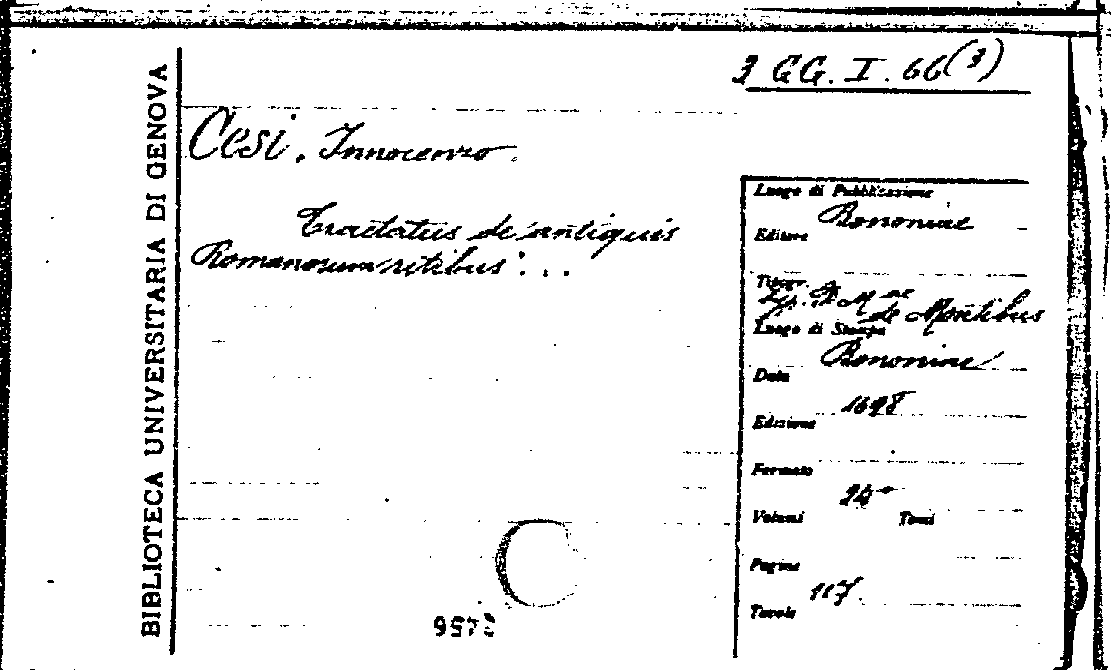 BIBLIOTECA UNIVERSITARIA DI GENOVA
3 GG. I. 66(3)
Cesi, Innocenzo.
Tractatus de antiquis
Romanorum ritibus...
Luogo di Pubblicazione
Bononiae
Editore
Tipogr.
de Montibus
Luogo di Stampa
Bononiae
Data
1698
Edizione
Formato
24°
Volumi Tomi
Pagine
117
Tavole